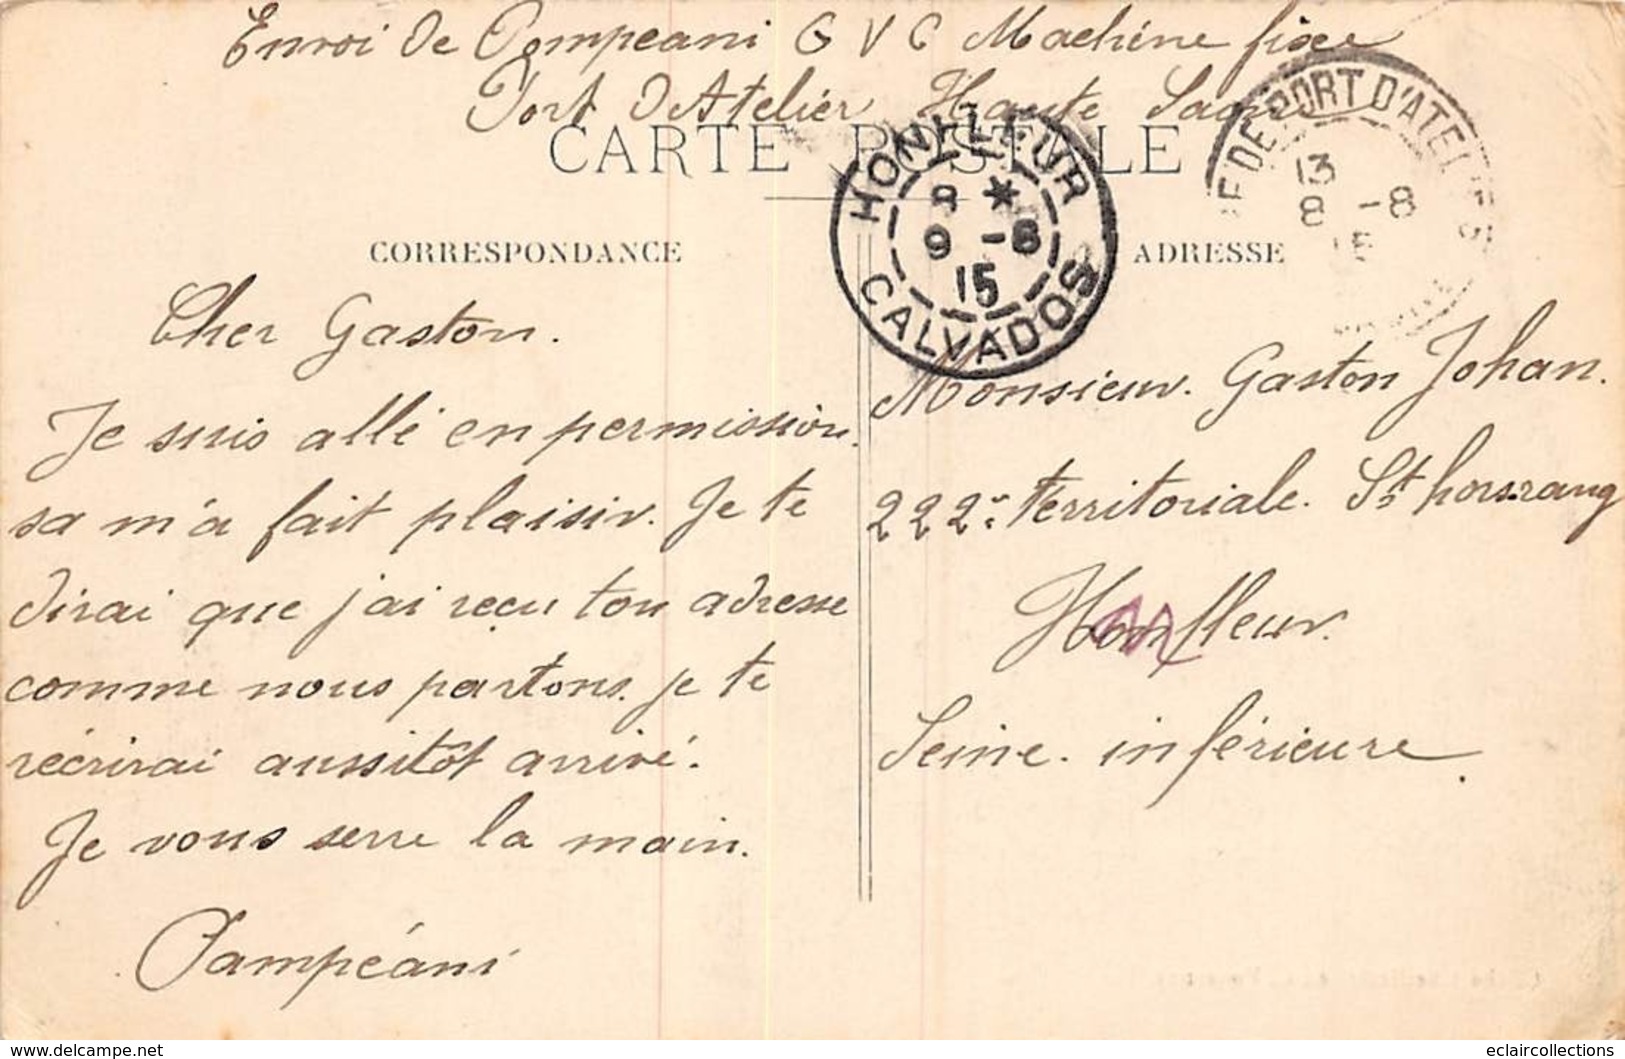 Envoi de Pompeani G V C Machine fixe
Port D'Atelier Haute Saone
CARTE POSTALE
HONFLEUR
8 *
9 -8
15
CALVADOS
RE DE PORT D'ATELIER
13
8 -8
15
CORRESPONDANCE
ADRESSE
Cher Gaston.
Je suis allé en permission.
sa m'a fait plaisir. Je te
dirai que j'ai reçu ton adresse
comme nous partons. je te
récrirai aussitôt arrivé.
Je vous serre la main.
Pampéani
Monsieur. Gaston Johan.
222e territoriale. St
Honfleur.
Seine. inférieure.
eclaircollections